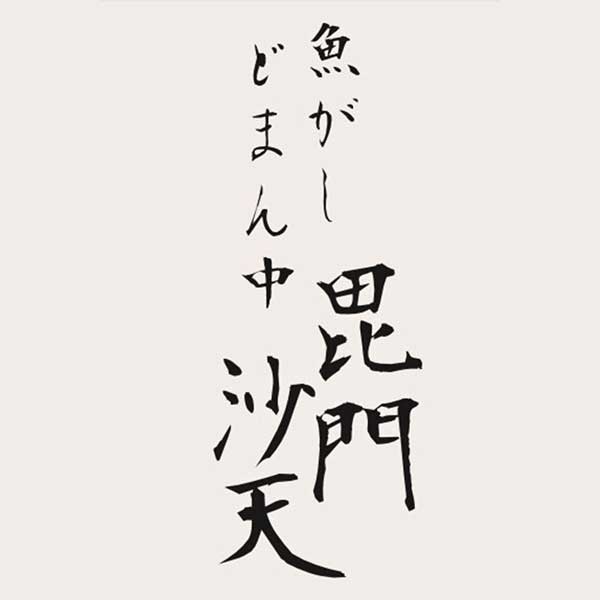 魚がし
どまん中
毘門
沙天